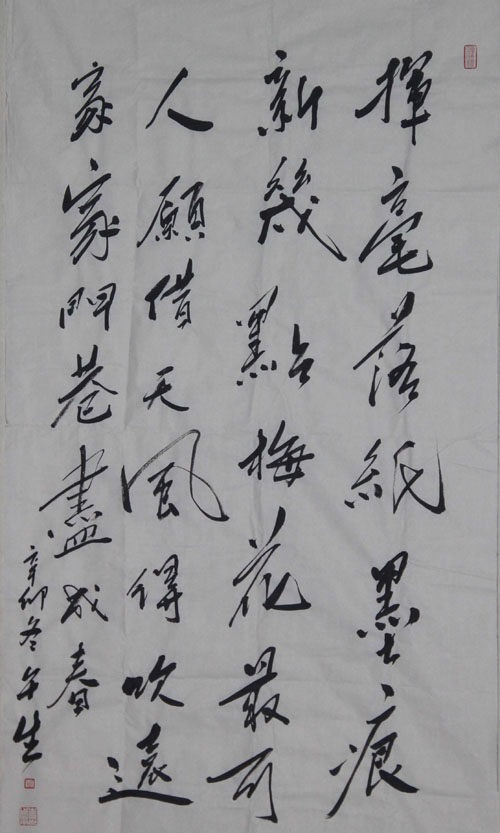 揮毫落紙墨痕
新幾點梅花最可
人願借天風得吹遠
家家門巷盡成春
辛卯冬午生